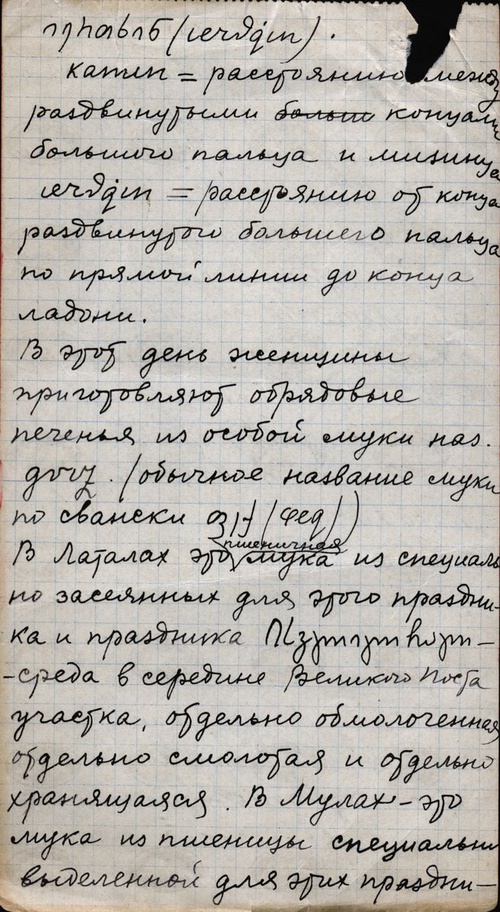 катеп = расстоянию между
раздвинутыми больш концами
большого пальца и мизинца
= расстоянию от конца
раздвинутого большего пальца
по прямой линии до конца
ладони.
В этот день женщины
приготовляют обрядовые
печенья из особой муки наз.
(обычное название муки
по свански (фед))
В Латалах это пшеничная мука из специаль
но засеянных для этого праздни-
ка и праздника
-среда в середине Великого Поста
участка, отдельно обмолоченная
отдельно смолотая и отдельно
хранящаяся. В Мулах - это
мука из пшеницы специально
выделенной для этих праздни-